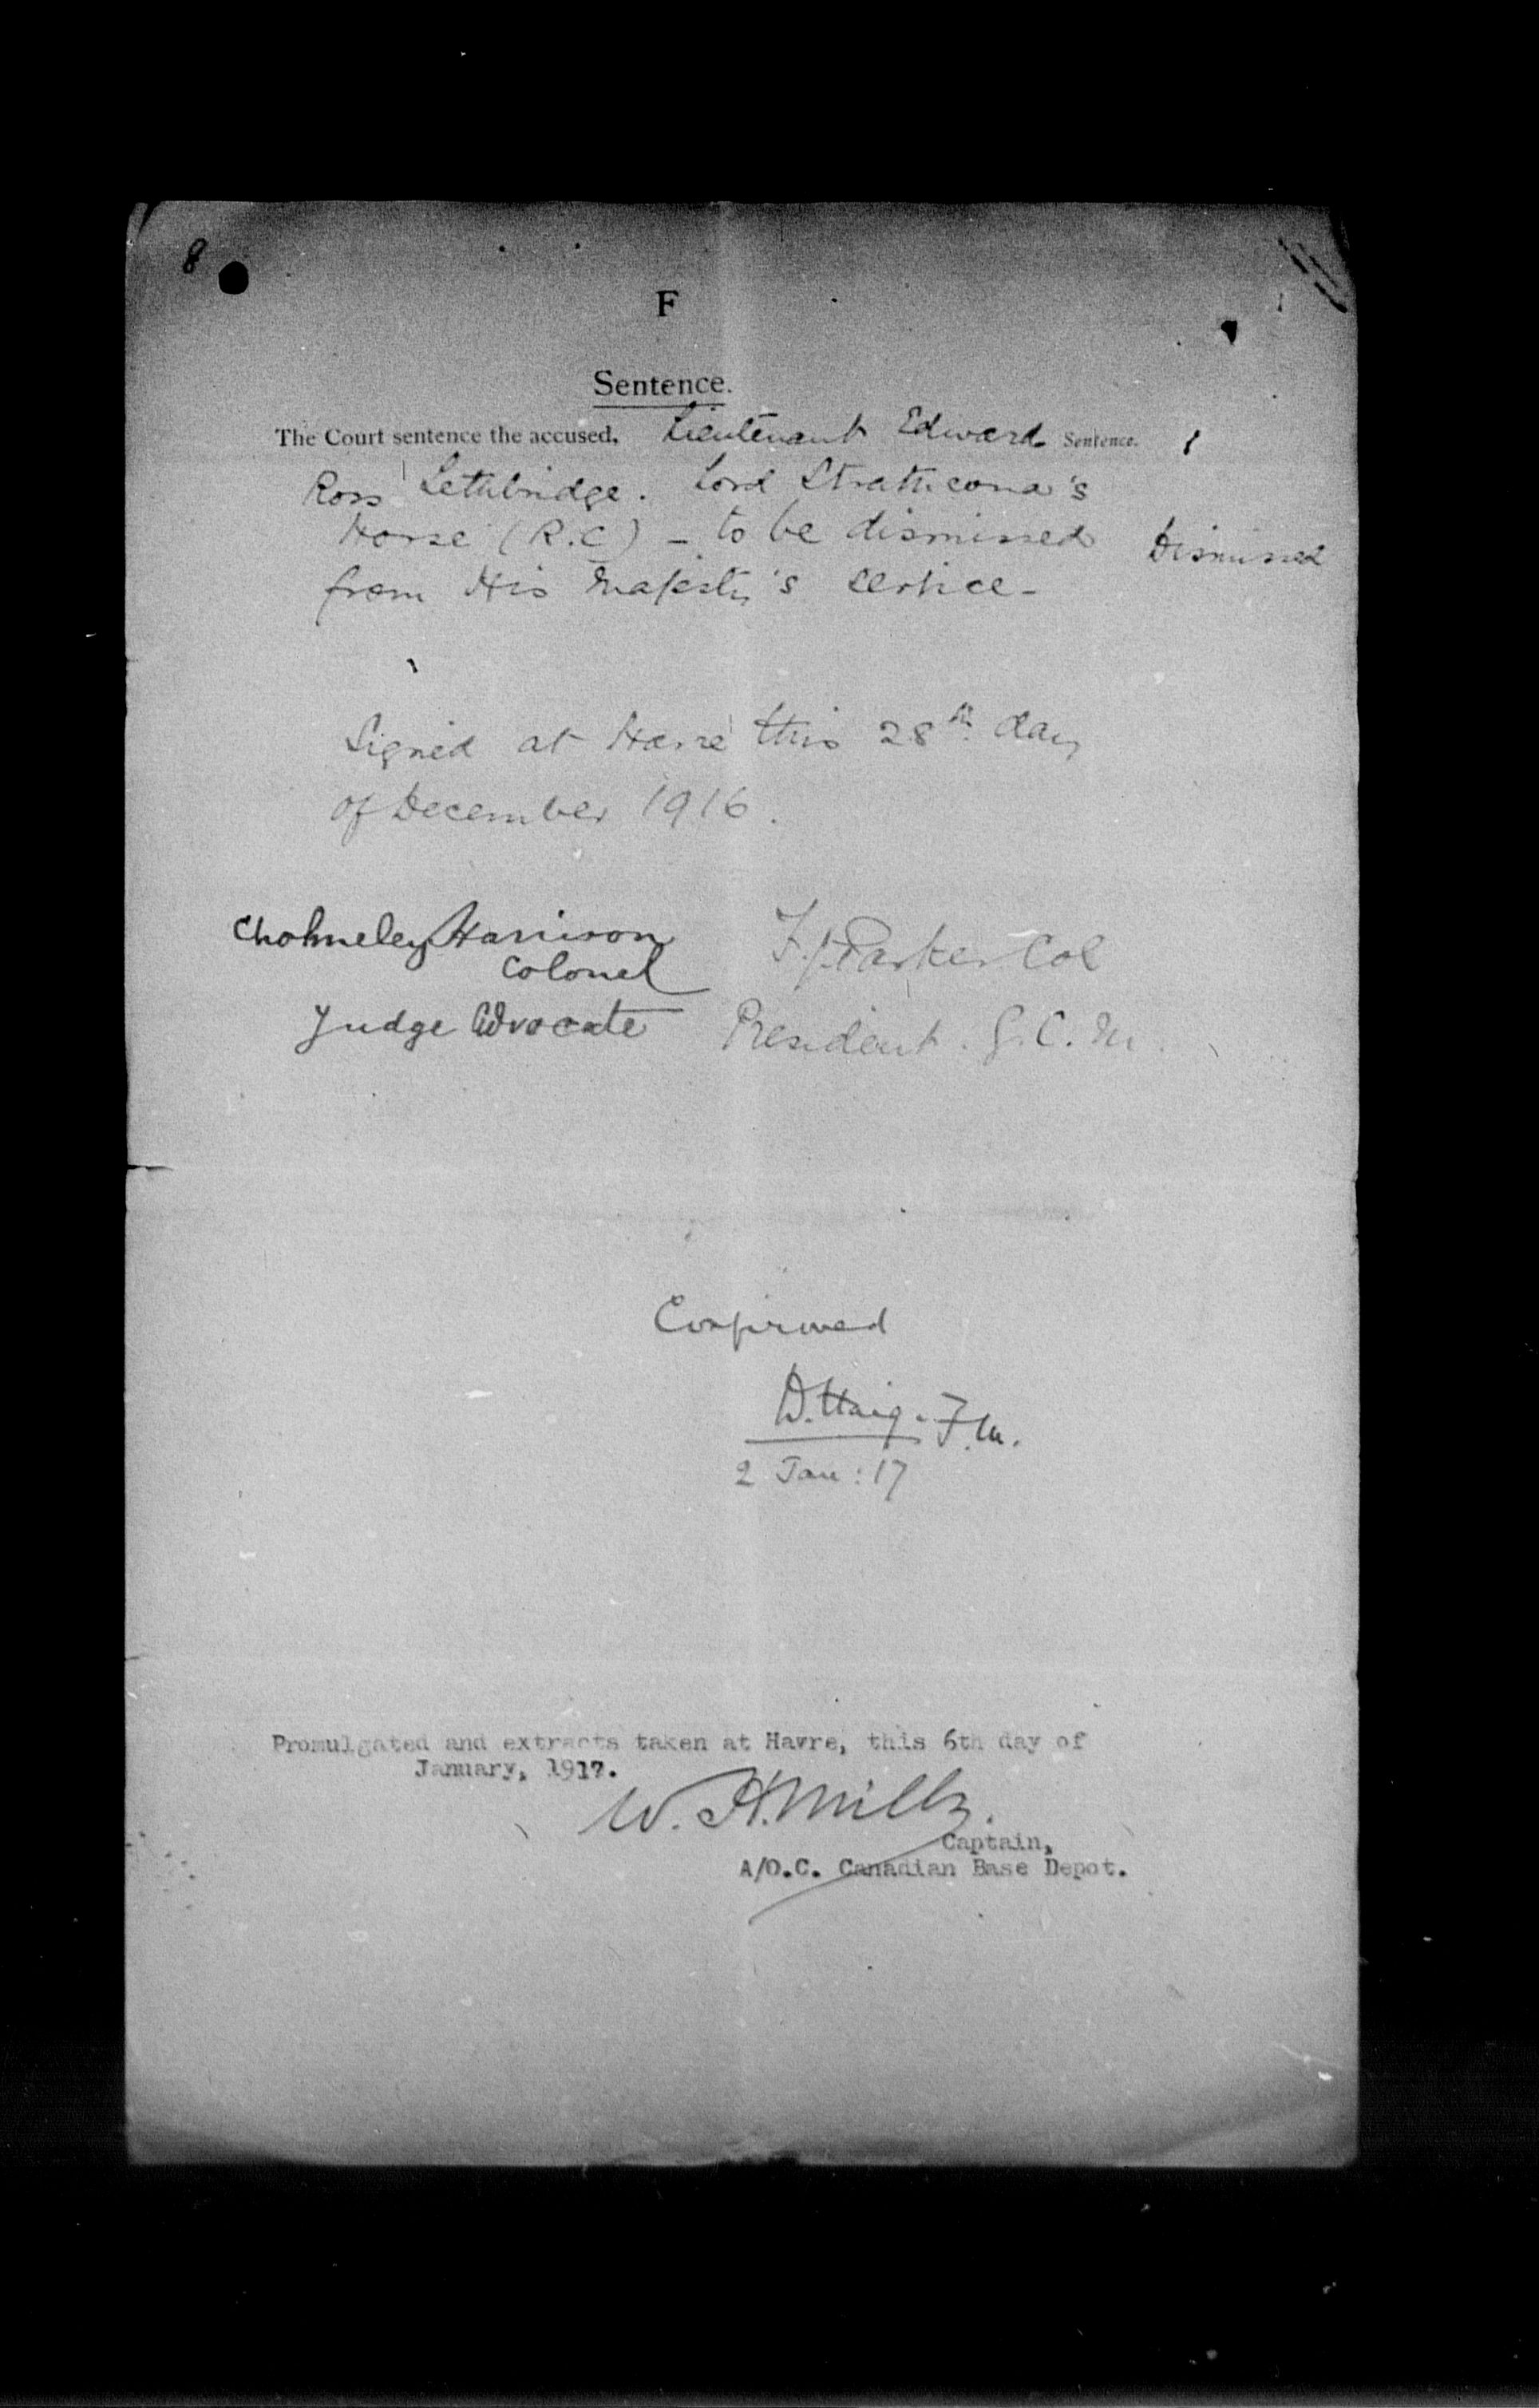 8
F
Sentence.
The Court sentence the accused, Lieutenant Edward Sentence.
Ross Lethbridge. Lord Strathcona's
Horse (R.C) - to be dismissed Dismissed
from His Majesty's Service -
Signed at Havre this 28th day
of December 1916.
Cholmeley Harrison
Colonel
Judge Advocate
F. Parker Col
President. G.C.M.
Confirmed
D. Haig. F.M.
2 Jan: 17
Promulgated and extracts taken at Havre, this 6th day of
January, 1917.
W. H. Mills.
Captain,
A/O.C. Canadian Base Depot.